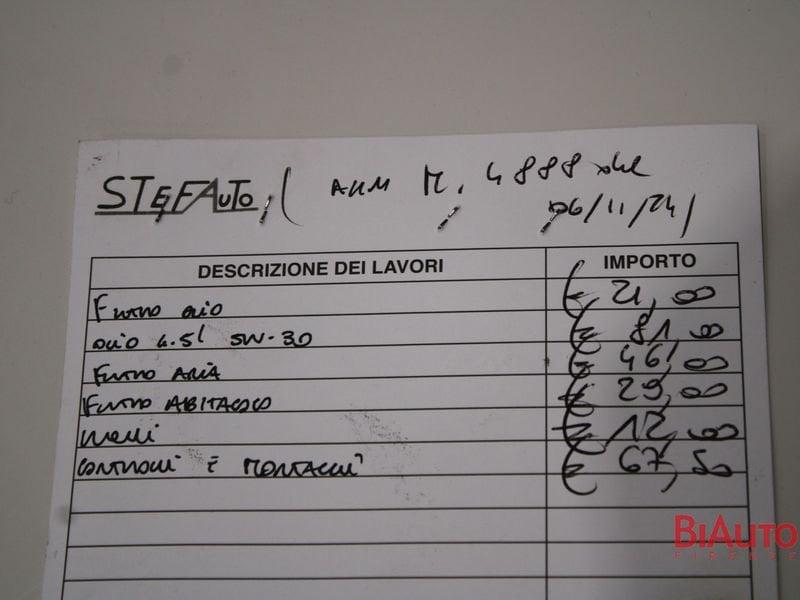 STEFAUTO
N. 4888 del
06/11/24
DESCRIZIONE DEI LAVORI IMPORTO
Filtro olio € 21,00
olio 4.5l 5W-30 € 81,00
Filtro ARIA € 46,00
Filtro ABITACOLO € 29,00
€ 12,00
CONTROLLI E MONTAGGI € 67,50
BIAUTO
FIRENZE